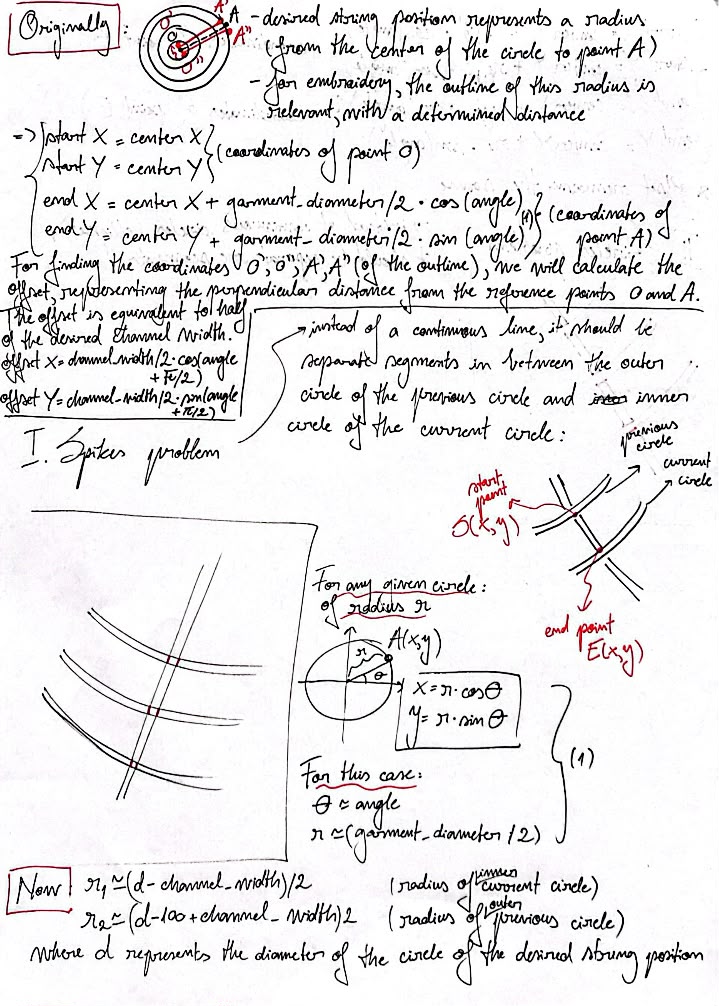 Originally:
O'
O
O"
A'
A
A"
- desired string position represents a radius
(from the center of the circle to point A)
- for embroidery, the outline of this radius is
relevant, with a determined distance
=> start X = center X
start Y = center Y
(coordinates of point O)
end X = center X + garment_diameter/2 · cos(angle)
end Y = center Y + garment_diameter/2 · sin(angle)
(1)
(coordinates of
point A)
For finding the coordinates O', O", A', A" (of the outline), we will calculate the
offset, representing the perpendicular distance from the reference points O and A.
The offset is equivalent to half
of the desired channel width.
offset X = channel_width/2 · cos(angle
+ π/2)
offset Y = channel_width/2 · sin(angle
+ π/2)
instead of a continuous line, it should be
separate segments in between the outer
circle of the previous circle and inner
circle of the current circle:
I. Spikes problem
previous
circle
current
circle
start
point
S(x,y)
end point
E(x,y)
For any given circle:
of raddius r
A(x,y)
r
θ
x = r · cos θ
y = r · sin θ
(1)
For this case:
θ ≈ angle
r ≃ (garment_diameter/2)
Now
r1 ≃ (d - channel_width)/2 (radius of inner current circle)
r2 ≃ (d-100 + channel_width)2 (radius of outer previous circle)
where d represents the diameter of the circle of the desired string position